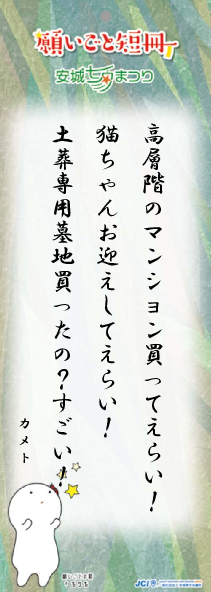 願いごと短冊
安城七夕まつり
高層階のマンション買ってえらい！
猫ちゃんお迎えしてえらい！
土葬専用墓地買ったの？すごい！
カメト
JCI